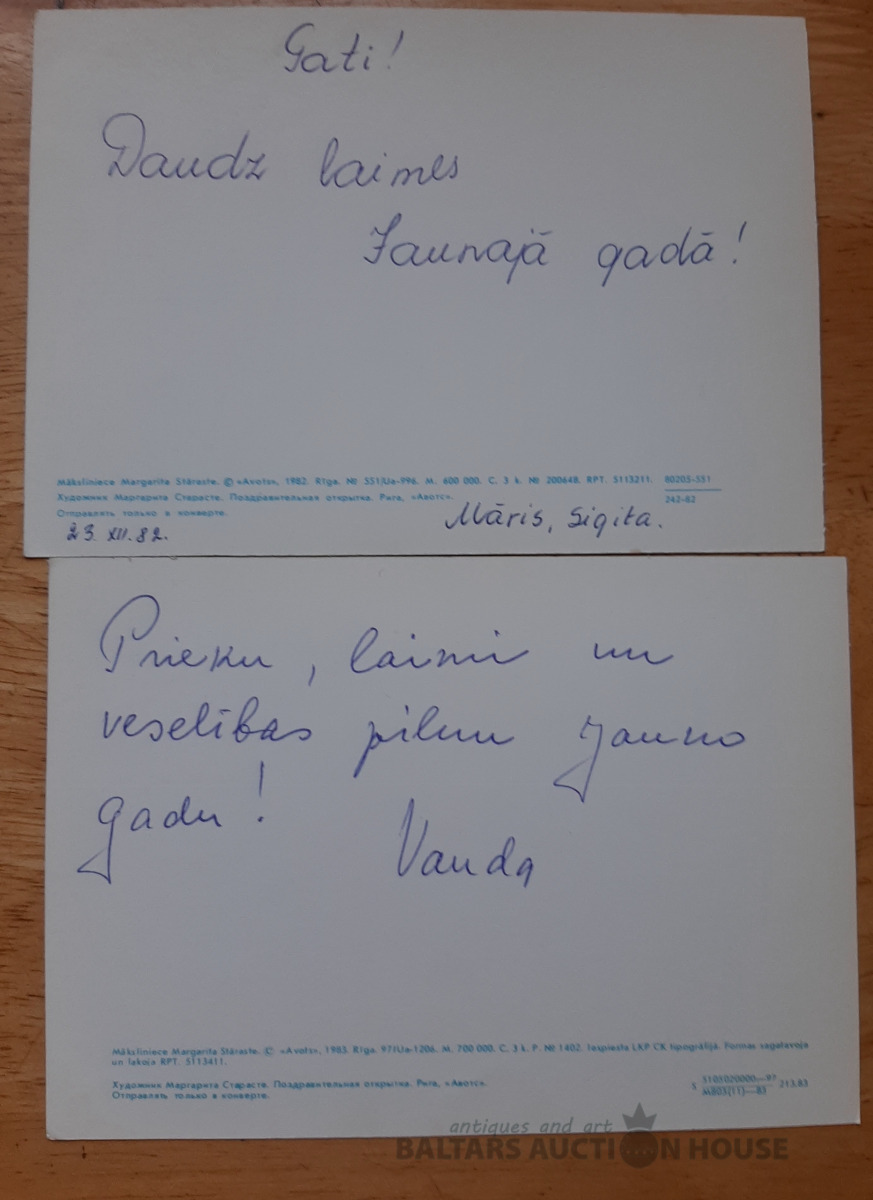 Gati!
Daudz laimes
Jaunajā gadā!
Māksliniece Margarita Stāraste. © «Avots», 1982. Rīga. № 551/Ua-996. M. 600 000. C. 3 k. № 200648. RPT. 5113211. 80205-551
242-82
Художник Маргарита Старасте. Поздравительная открытка. Рига, «Авотс».
Отправлять только в конверте.
23. XII. 82.
Māris, Sigita.
Prieku, laimi un
veselības pilnu Jauno
gadu!
Vanda
Māksliniece Margarita Stāraste. © «Avots», 1983. Rīga. 97/Ua-1206. M. 700 000. C. 3 k. P. № 1402. Iespiesta LKP CK tipogrāfijā. Formas sagatavoja
un lakoja RPT. 5113411.
Художник Маргарита Старасте. Поздравительная открытка. Рига, «Авотс».
Отправлять только в конверте.
S 5103020000—97
M803(11)—83 213.83
antiques and art
BALTARS AUCTION HOUSE